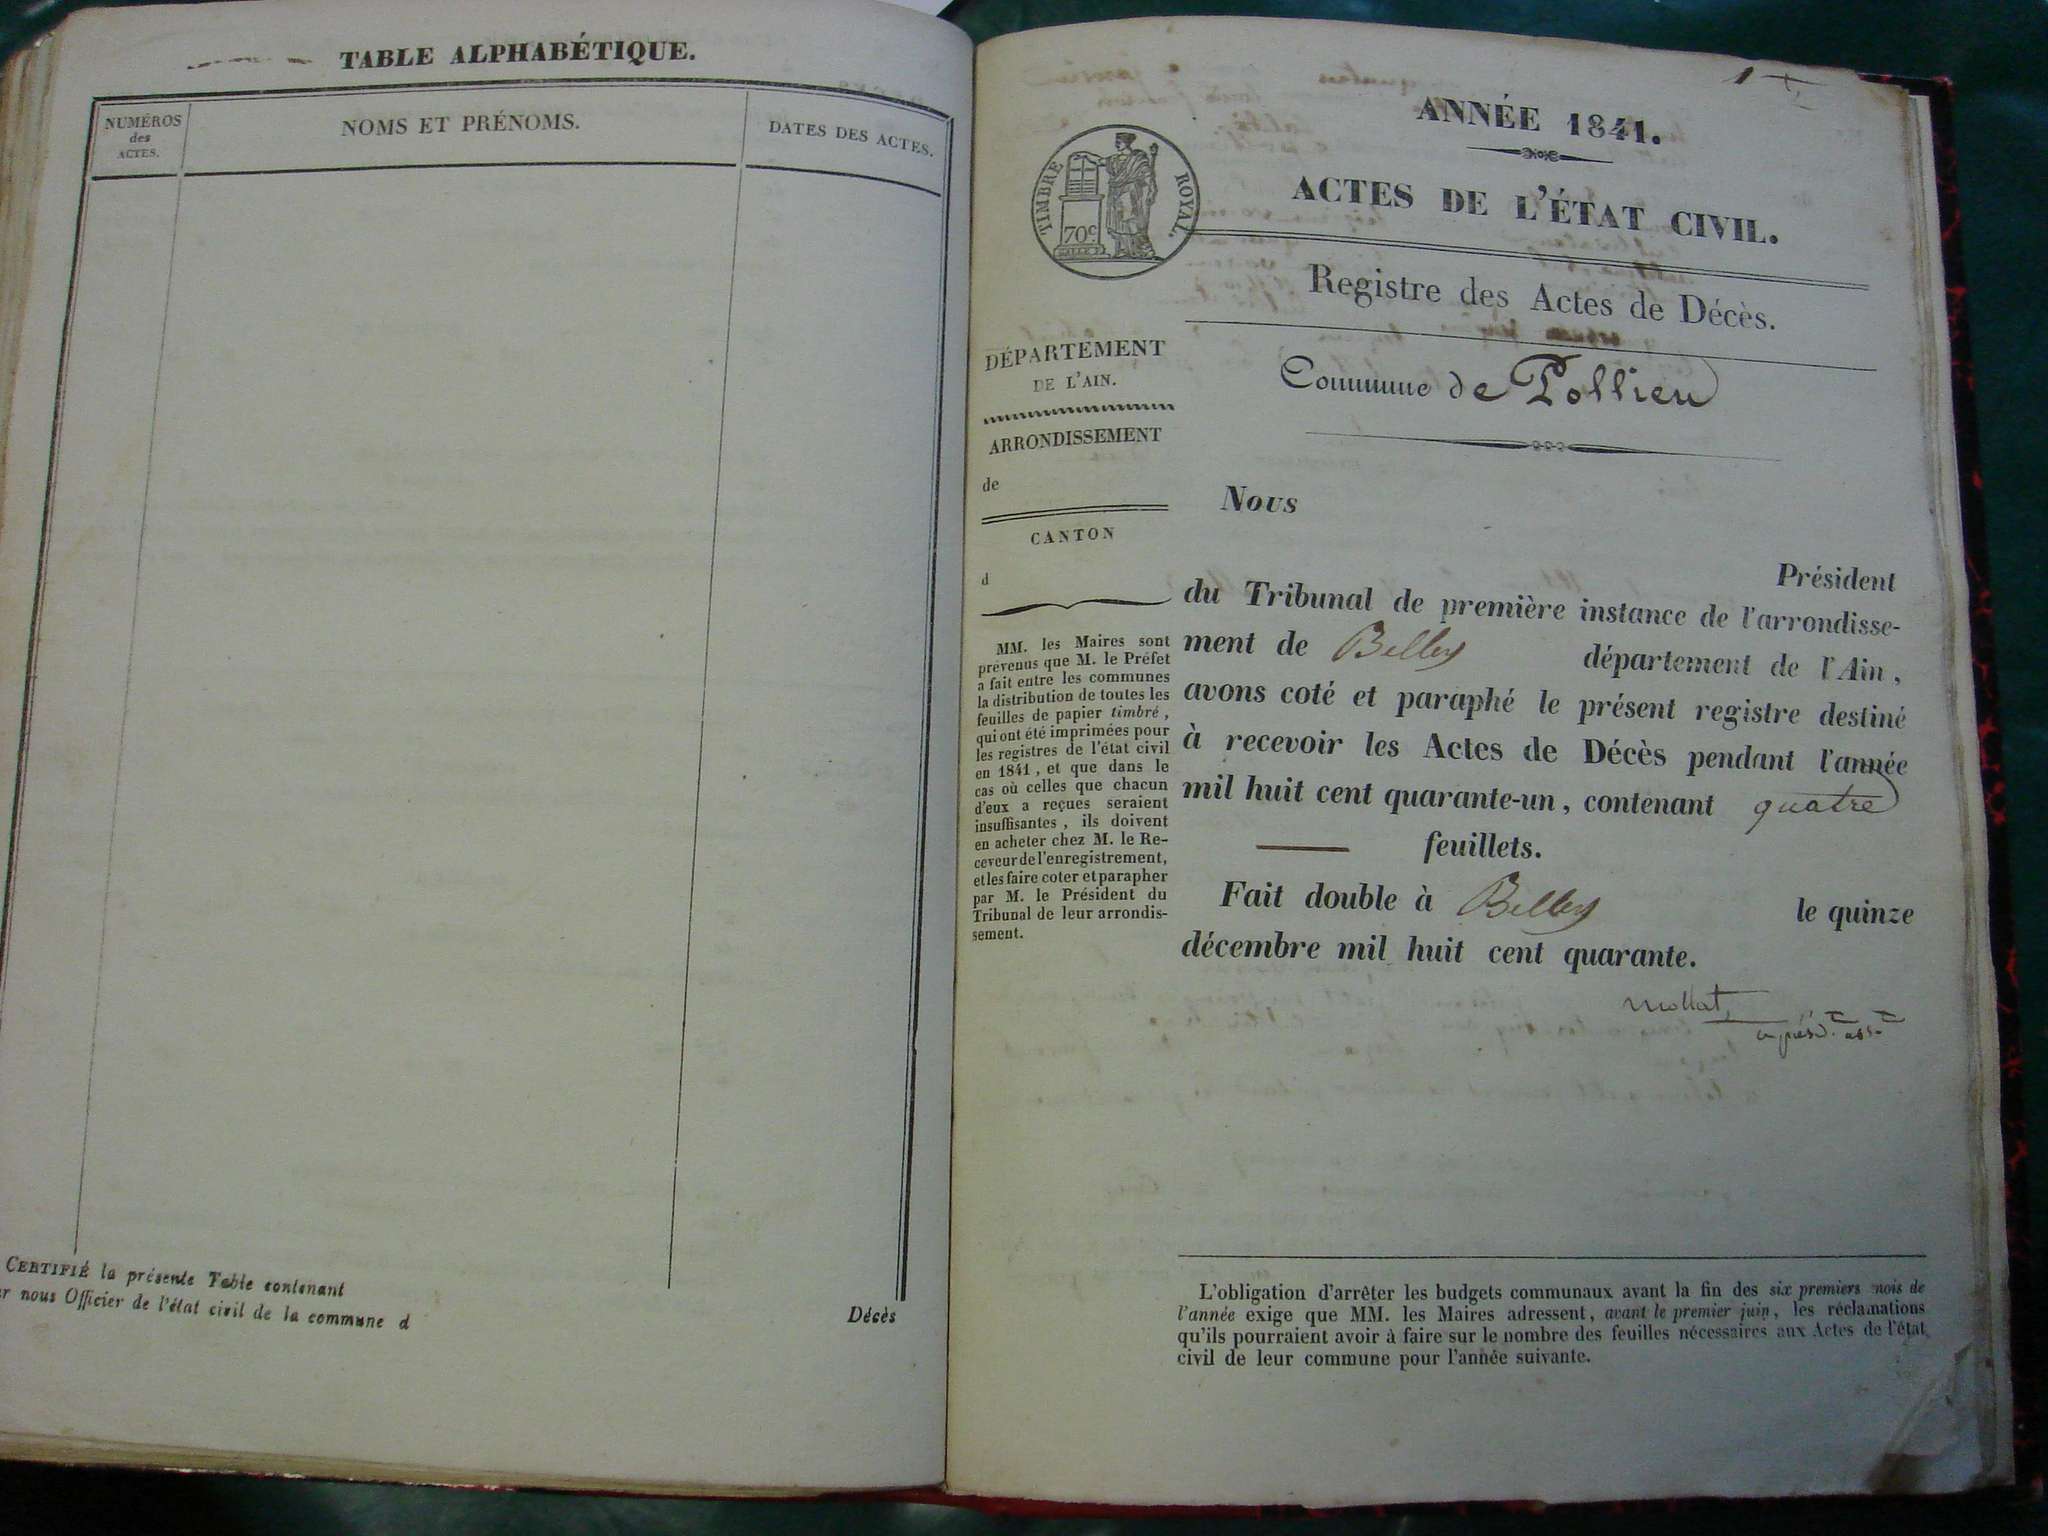 TABLE ALPHABÉTIQUE.
NUMÉROS
des
ACTES.
NOMS ET PRÉNOMS.
DATES DES ACTES.
CERTIFIÉ la présente Table contenant
Décès
r nous Officier de l'état civil de la commune d
1
ANNÉE 1841.
TIMBRE ROYAL.
70c
ACTES DE L'ÉTAT CIVIL.
Registre des Actes de Décès.
Commune de Pollieu
DÉPARTEMENT
DE L'AIN.
ARRONDISSEMENT
de
CANTON
d
MM. les Maires sont
prévenus que M. le Préfet
a fait entre les communes
la distribution de toutes les
feuilles de papier timbré,
qui ont été imprimées pour
les registres de l'état civil
en 1841, et que dans le
cas où celles que chacun
d'eux a reçues seraient
insuffisantes, ils doivent
en acheter chez M. le Re-
ceveur de l'enregistrement,
et les faire coter et parapher
par M. le Président du
Tribunal de leur arrondis-
sement.
Nous
Président
du Tribunal de première instance de l'arrondisse-
ment de Belley département de l'Ain,
avons coté et paraphé le présent registre destiné
à recevoir les Actes de Décès pendant l'année
mil huit cent quarante-un, contenant quatre
feuillets.
Fait double à Belley le quinze
décembre mil huit cent quarante.
Mollat,
L'obligation d'arrêter les budgets communaux avant la fin des six premiers mois de
l'année exige que MM. les Maires adressent, avant le premier juin, les réclamations
qu'ils pourraient avoir à faire sur le nombre des feuilles nécessaires aux Actes de l'état
civil de leur commune pour l'année suivante.